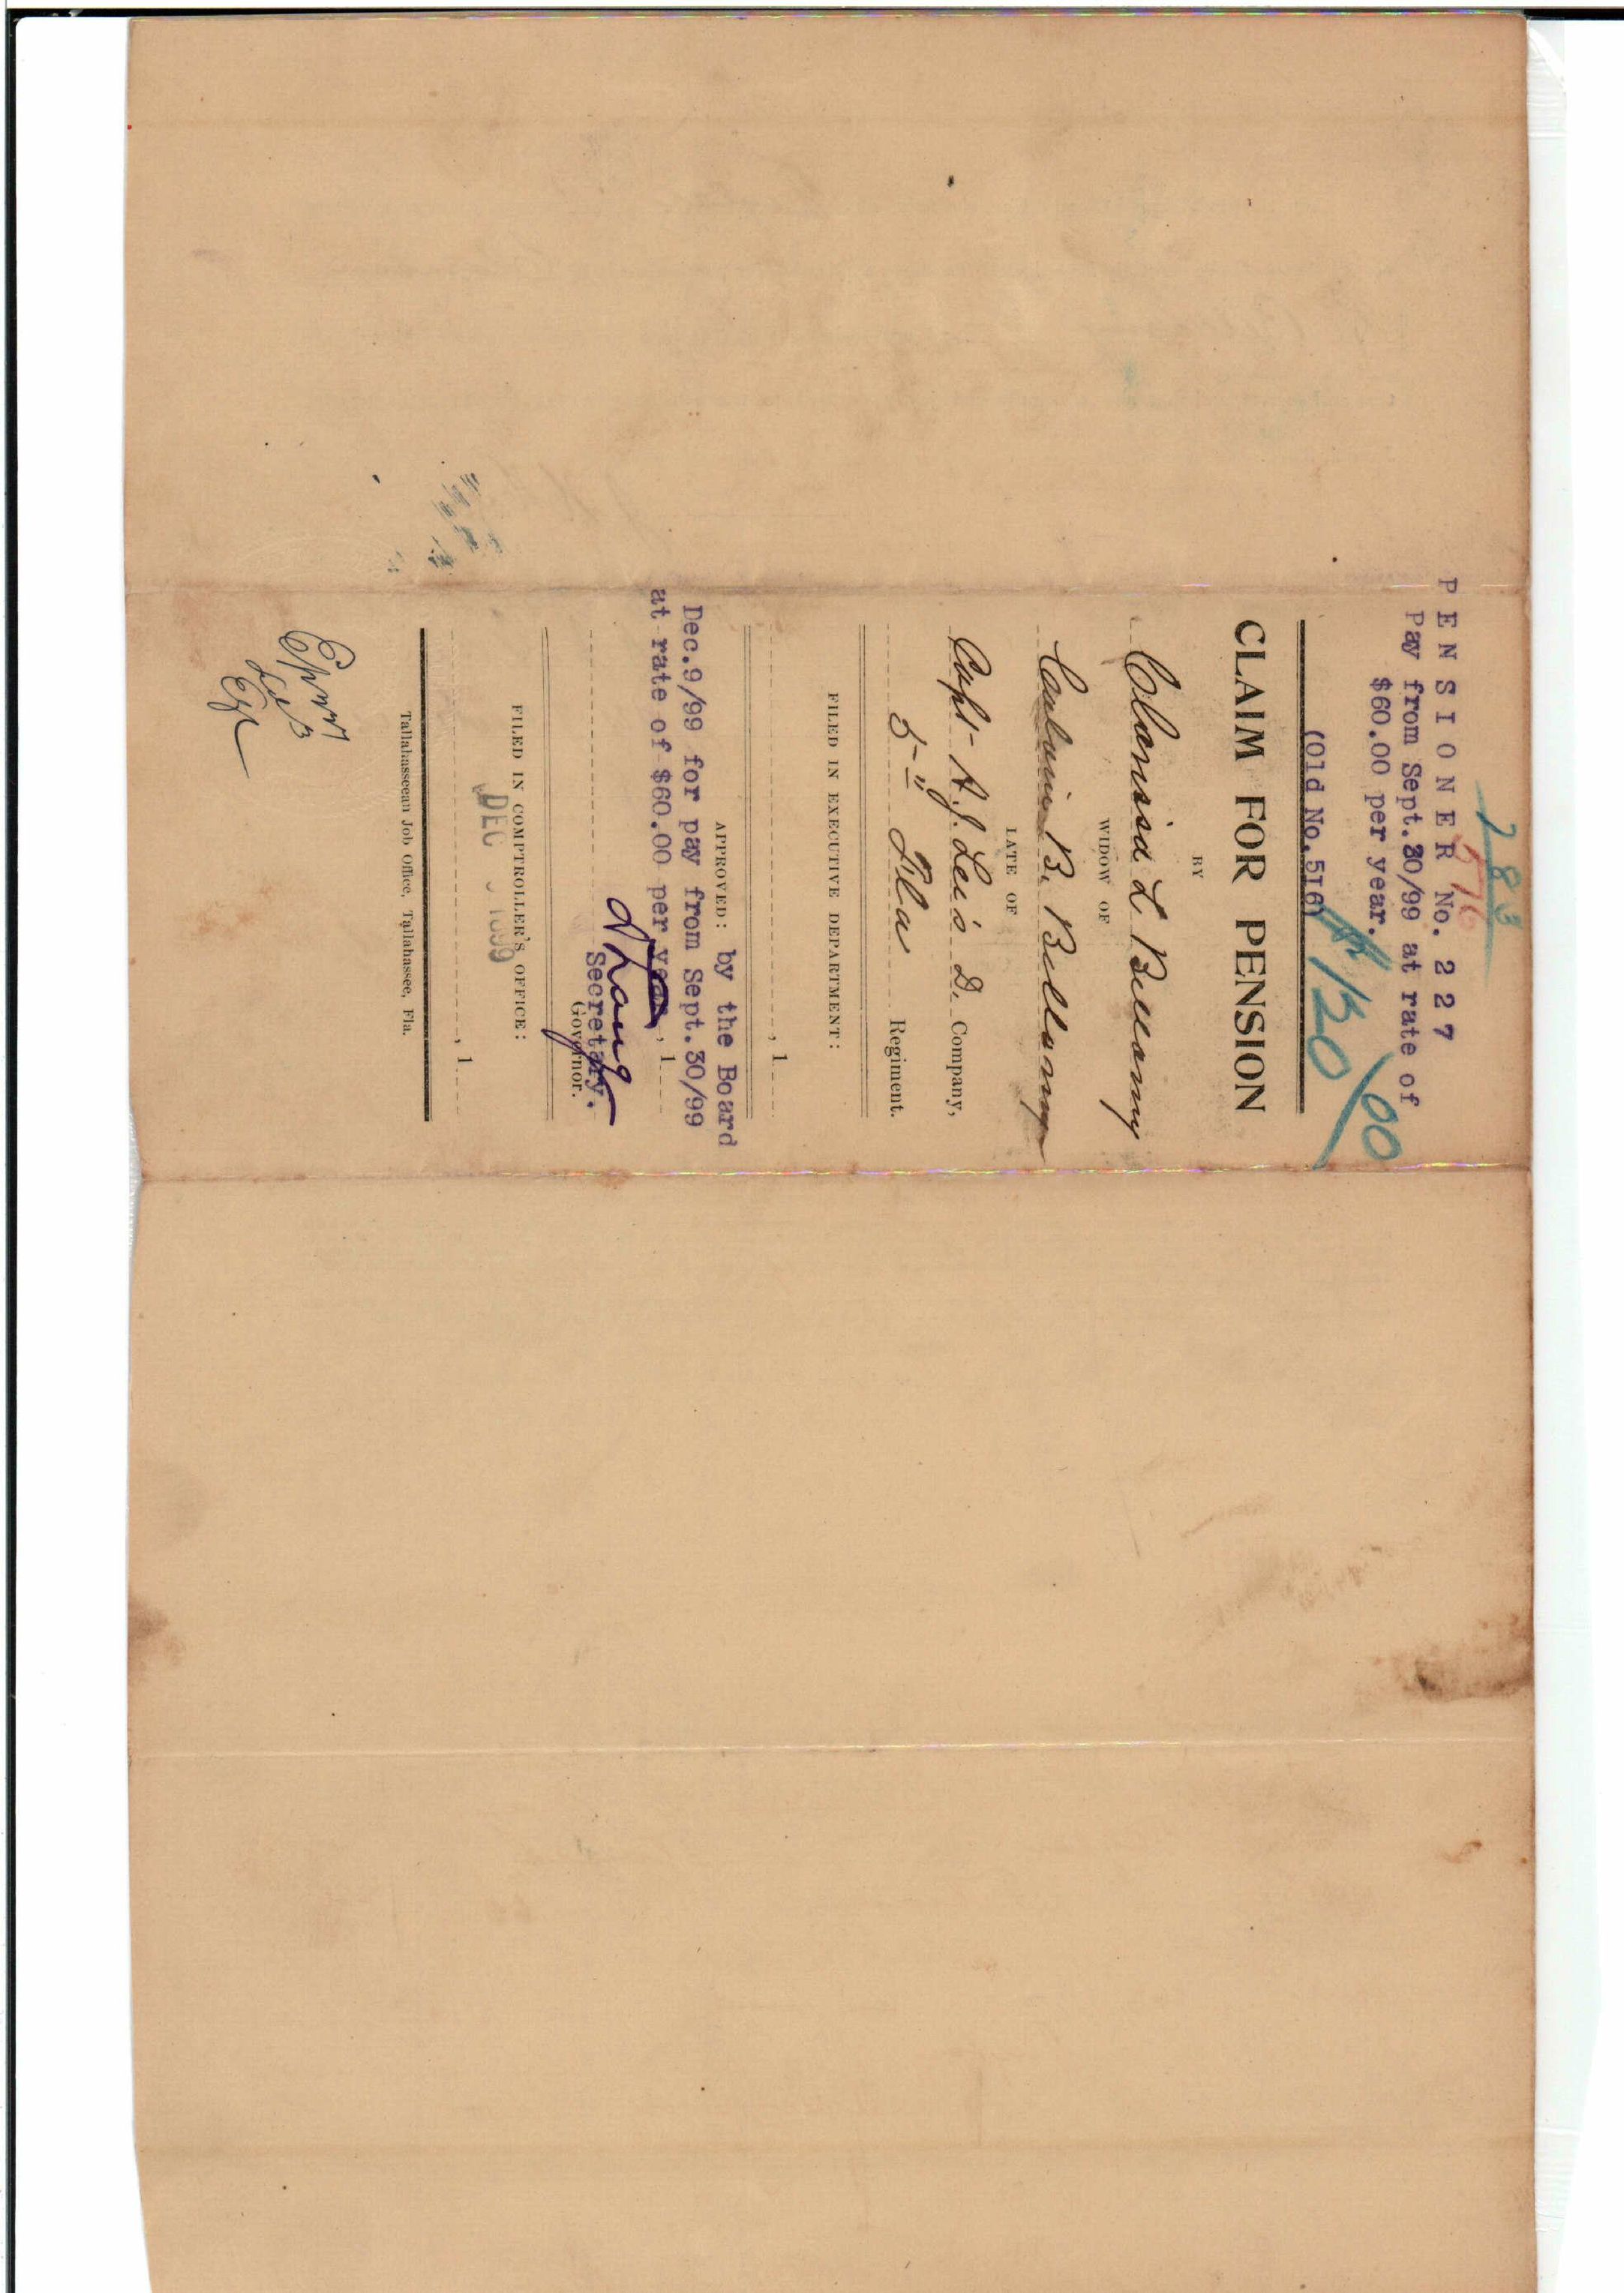 283
PENSIONER No. 227
Pay from Sept. 30/99 at rate of
$60.00 per year.
(Old No. 516)
120/00
CLAIM FOR PENSION
BY
L Bellamy
WIDOW OF
B. Bellamy
LATE OF
Capt- A.J. Lee's D. Company,
5-" Fla Regiment.
FILED IN EXECUTIVE DEPARTMENT:
, 1
APPROVED: by the Board
Dec.9/99 for pay from Sept.30/99
at rate of $60.00 per year, 1
Secretary.
Governor.
FILED IN COMPTROLLER'S OFFICE:
DEC 1899
, 1
Tallahasseean Job Office, Tallahassee, Fla.